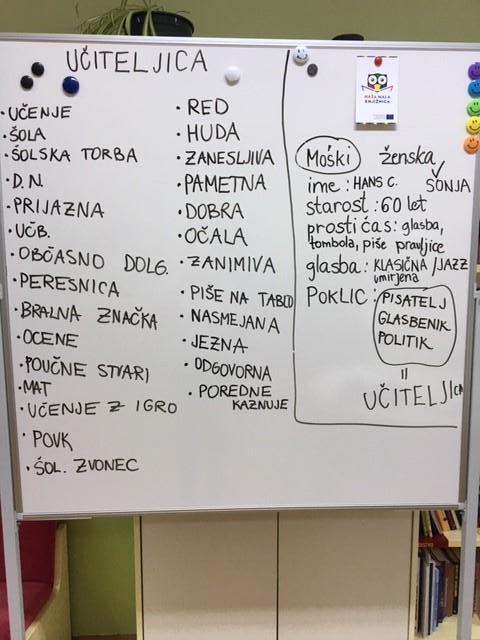 UČITELJICA
• UČENJE
• ŠOLA
• ŠOLSKA TORBA
• D.N.
• PRIJAZNA
• UČB.
• OBČASNO DOLG.
• PERESNICA
• BRALNA ZNAČKA
• OCENE
• POUČNE STVARI
• MAT
• UČENJE Z IGRO
• POVK
• ŠOL. ZVONEC
• RED
• HUDA
• ZANESLJIVA
• PAMETNA
• DOBRA
• OČALA
• ZANIMIVA
• PIŠE NA TABLO
• NASMEJANA
• JEZNA
• ODGOVORNA
• POREDNE
KAZNUJE
NAŠA MALA
KNJIŽNICA
Moški ženska
ime : HANS C. SONJA
starost : 60 let
prosti čas: glasba,
tombola, piše pravljice
glasba: KLASIČNA / JAZZ
umirjena
POKLIC : PISATELJ
GLASBENIK
POLITIK
=
UČITELJICA